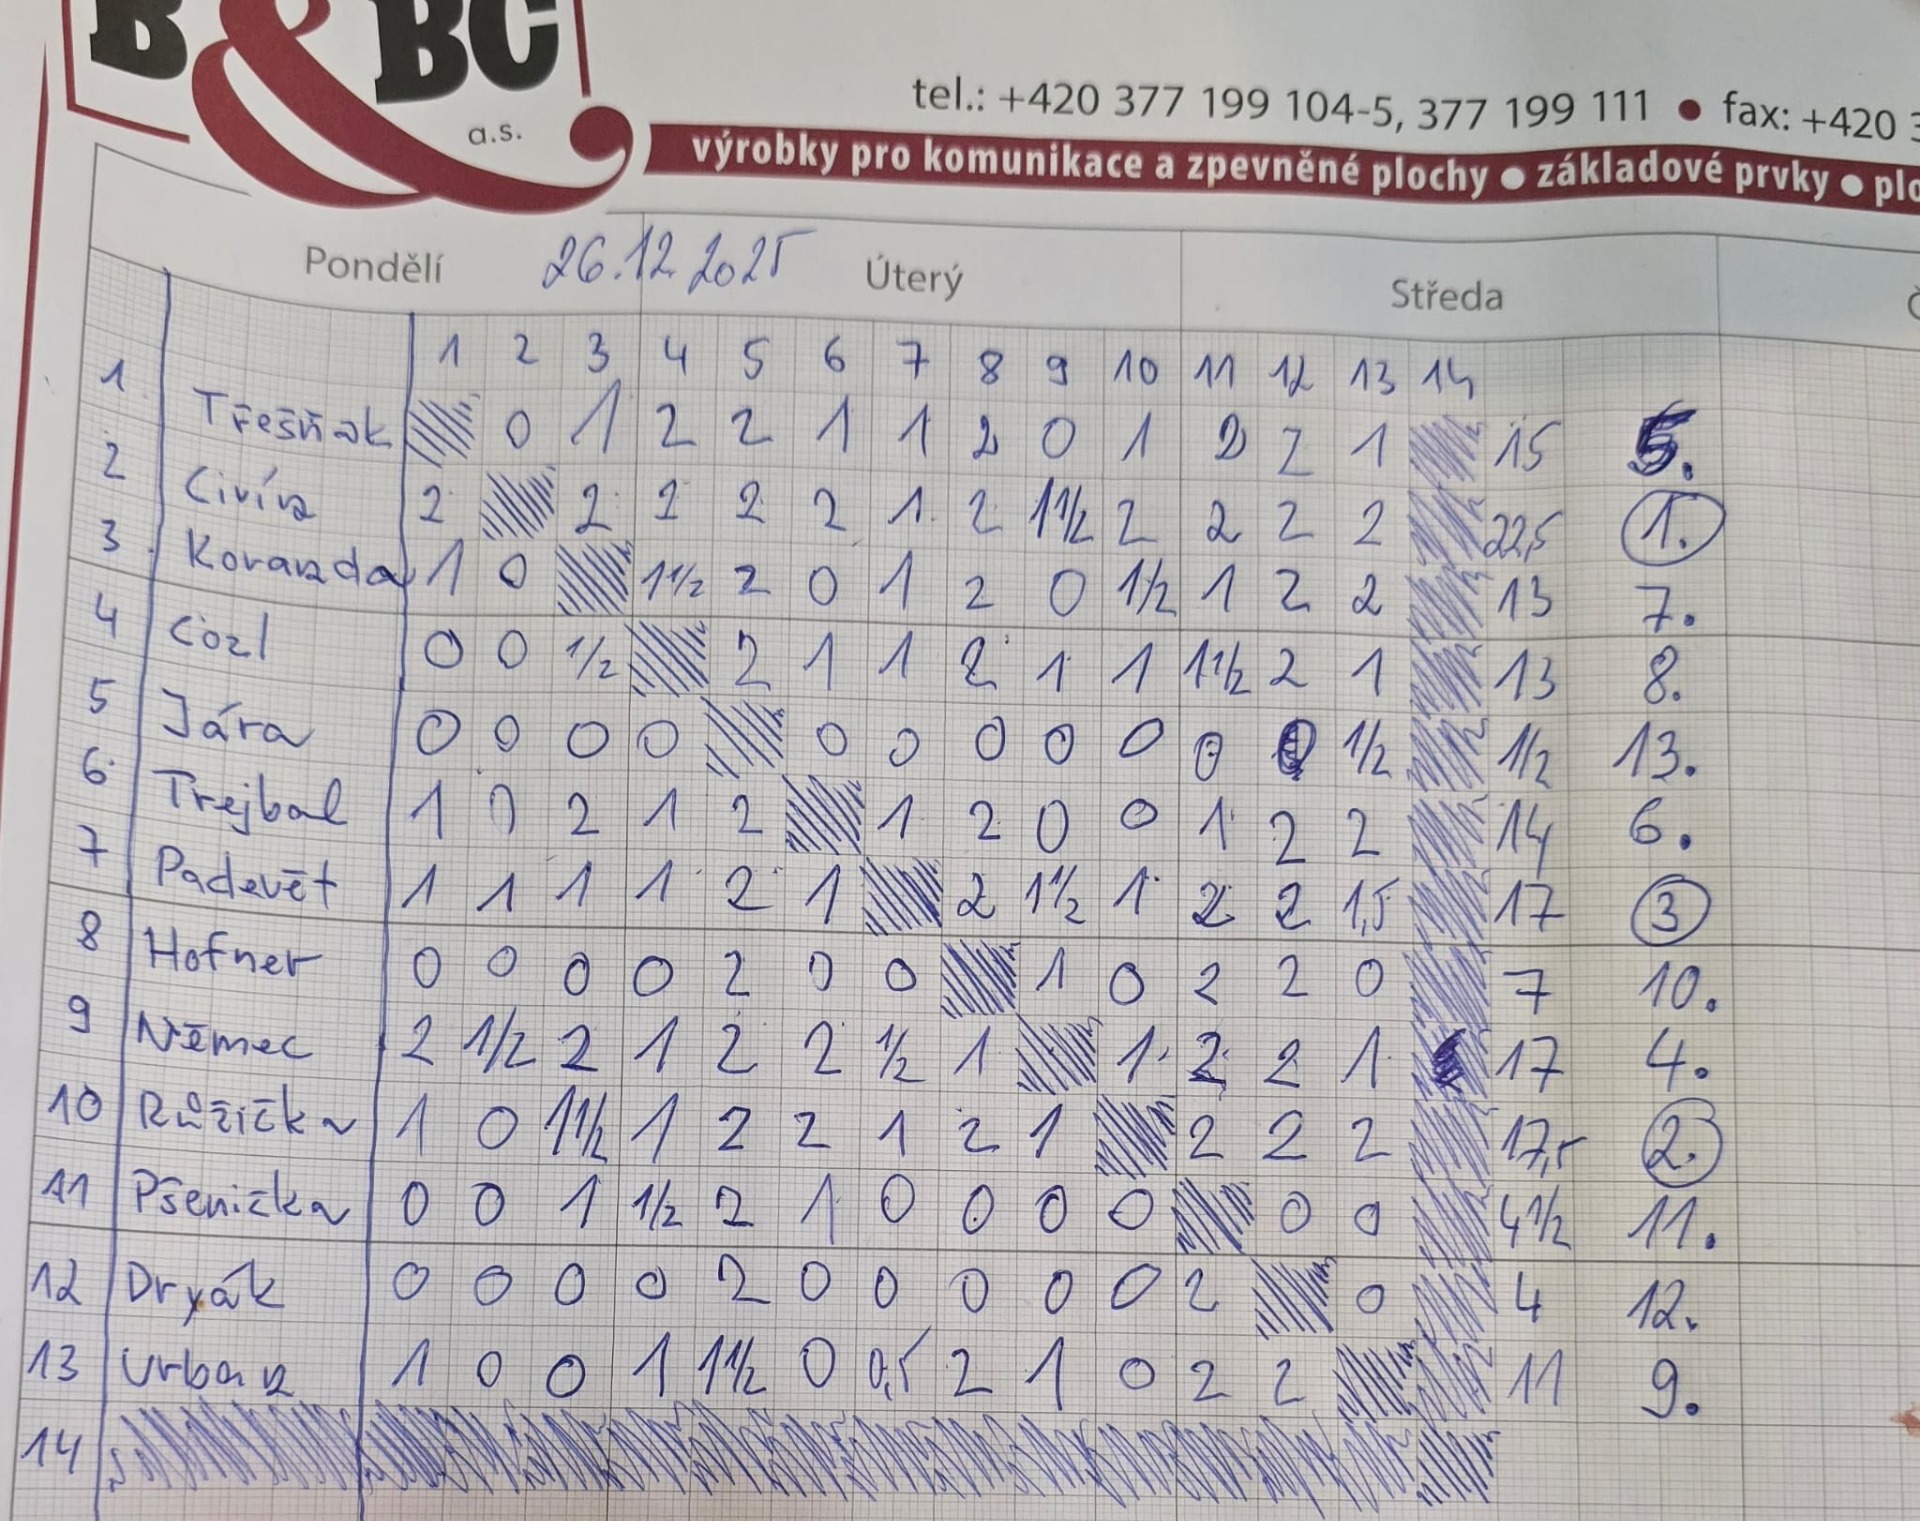 B&BC
a.s.
tel.: +420 377 199 104-5, 377 199 111 • fax: +420 3
výrobky pro komunikace a zpevněné plochy • základové prvky • plo
Pondělí 26.12.2025 Úterý Středa Č
1 2 3 4 5 6 7 8 9 10 11 12 13 14
1 Třešňák 0 1 2 2 1 1 2 0 1 2 2 1 15 5.
2 Civín 2 2 2 2 2 1 2 1 1/2 2 2 2 2 22,5 1.
3 Koranda 1 0 1 1/2 2 0 1 2 0 1/2 1 2 2 13 7.
4 Cozl 0 0 1/2 2 1 1 2 1 1 1 1/2 2 1 13 8.
5 Jára 0 0 0 0 0 0 0 0 0 0 0 1/2 1/2 13.
6 Trejbal 1 0 2 1 2 1 2 0 0 1 2 2 14 6.
7 Padevět 1 1 1 1 2 1 2 1 1/2 1 2 2 1,5 17 3
8 Hofner 0 0 0 0 2 0 0 1 0 2 2 0 7 10.
9 Němec 2 1/2 2 1 2 2 1/2 1 1 2 2 1 17 4.
10 Růžička 1 0 1 1/2 1 2 2 1 2 1 2 2 2 17,5 2.
11 Pšenička 0 0 1 1/2 2 1 0 0 0 0 0 0 4 1/2 11.
12 Dryák 0 0 0 0 2 0 0 0 0 0 2 0 4 12.
13 Urban 1 0 0 1 1 1/2 0 0,5 2 1 0 2 2 11 9.
14